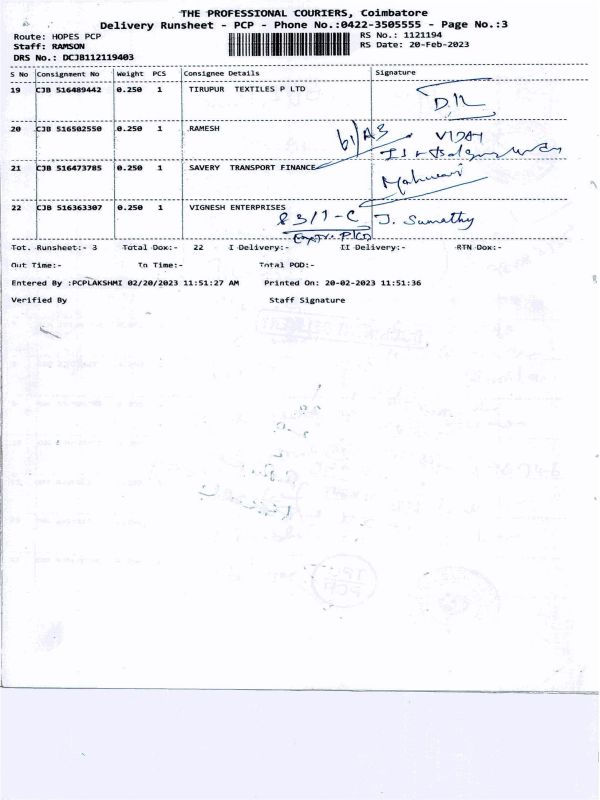 THE PROFESSIONAL COURIERS, Coimbatore
Delivery Runsheet - PCP - Phone No.:0422-3505555 - Page No.:3
Route: HOPES PCP
Staff: RAMSON
DRS No.: DCJB112119403
RS No.: 1121194
RS Date: 20-Feb-2023
S No Consignment No Weight PCS Consignee Details Signature
19 CJB 516489442 0.250 1 TIRUPUR TEXTILES P LTD
20 CJB 516502550 0.250 1 RAMESH
21 CJB 516473785 0.250 1 SAVERY TRANSPORT FINANCE
22 CJB 516363307 0.250 1 VIGNESH ENTERPRISES
83/1-C J. Sumathy
Tot. Runsheet:- 3 Total Dox:- 22 I Delivery:- II Delivery:- RTN Dox:-
Out Time:- In Time:- Total POD:-
Entered By :PCPLAKSHMI 02/20/2023 11:51:27 AM Printed On: 20-02-2023 11:51:36
Verified By Staff Signature